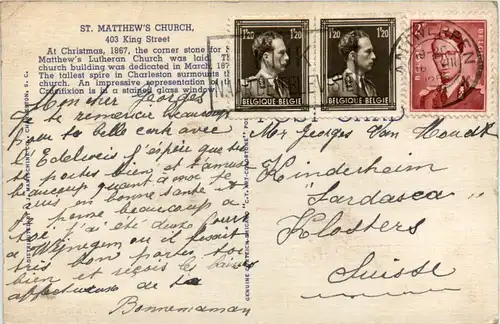 ST. MATTHEW'S CHURCH,
403 King Street
At Christmas, 1867, the corner stone for
Matthew's Lutheran Church was laid. The
church building was dedicated in March, 187
The tallest spire in Charleston surmounts th
church. An impressive representation of
Crucifixion is in a stained glass window.
Mon cher Georges
je te remercie beaucoup
pour ta belle carte avec
Edelweis j'espère que tu
te portes bien et t'amuse
beaucoup quant à moi je
suis en bonne santé et
pense beaucoup a
toi, j'ai été deux jours
a Wijnegem ou il faisait
très bon portes toi
bien et reçois les baisers
affectueux de ta
Bonnemaman
1F20 1F20
BELGIQUE BELGIE BELGIQUE BELGIE
ANTWERPEN
POST CARD
GENUINE CURTEICH-CHICAGO "C.T. ART-COLORTONE" POST
Mr Georges Van
Kinderheim
"Sardasca"
Klosters
Suisse